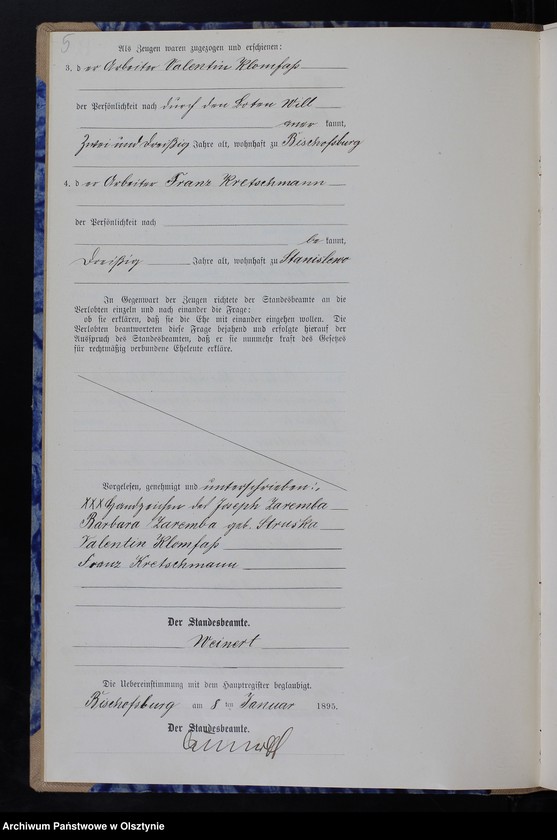 5
Als Zeugen waren zugezogen und erschienen:
3. d er Arbeiter Valentin Klomfaß
der Persönlichkeit nach durch den Boten Will
mer kannt,
Zwei und dreißig Jahre alt, wohnhaft zu Bischofsburg
4. d er Arbeiter Franz Kretschmann
der Persönlichkeit nach
be kannt,
dreißig Jahre alt, wohnhaft zu Stanislewo
In Gegenwart der Zeugen richtete der Standesbeamte an die
Verlobten einzeln und nach einander die Frage:
ob sie erklären, daß sie die Ehe mit einander eingehen wollen. Die
Verlobten beantworteten diese Frage bejahend und erfolgte hierauf der
Ausspruch des Standesbeamten, daß er sie nunmehr kraft des Gesetzes
für rechtmäßig verbundene Eheleute erkläre.
Vorgelesen, genehmigt und unterschrieben:
XXX Handzeichen des Joseph Zaremba
Barbara Zaremba geb. Struska
Valentin Klomfaß
Franz Kretschmann
Der Standesbeamte.
Weinert
Die Uebereinstimmung mit dem Hauptregister beglaubigt.
Bischofsburg am 8 ten Januar 1895.
Der Standesbeamte.
Archiwum Państwowe w Olsztynie